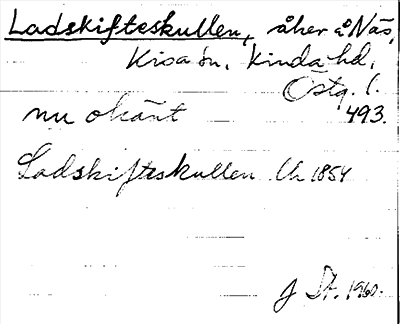 Ladskifteskullen, åker å Näs,
Kisa sn. Kinda hd.
Östg. l.
nu okänt 493.
Ladskifteskullen Uk 1854
J St. 1960.